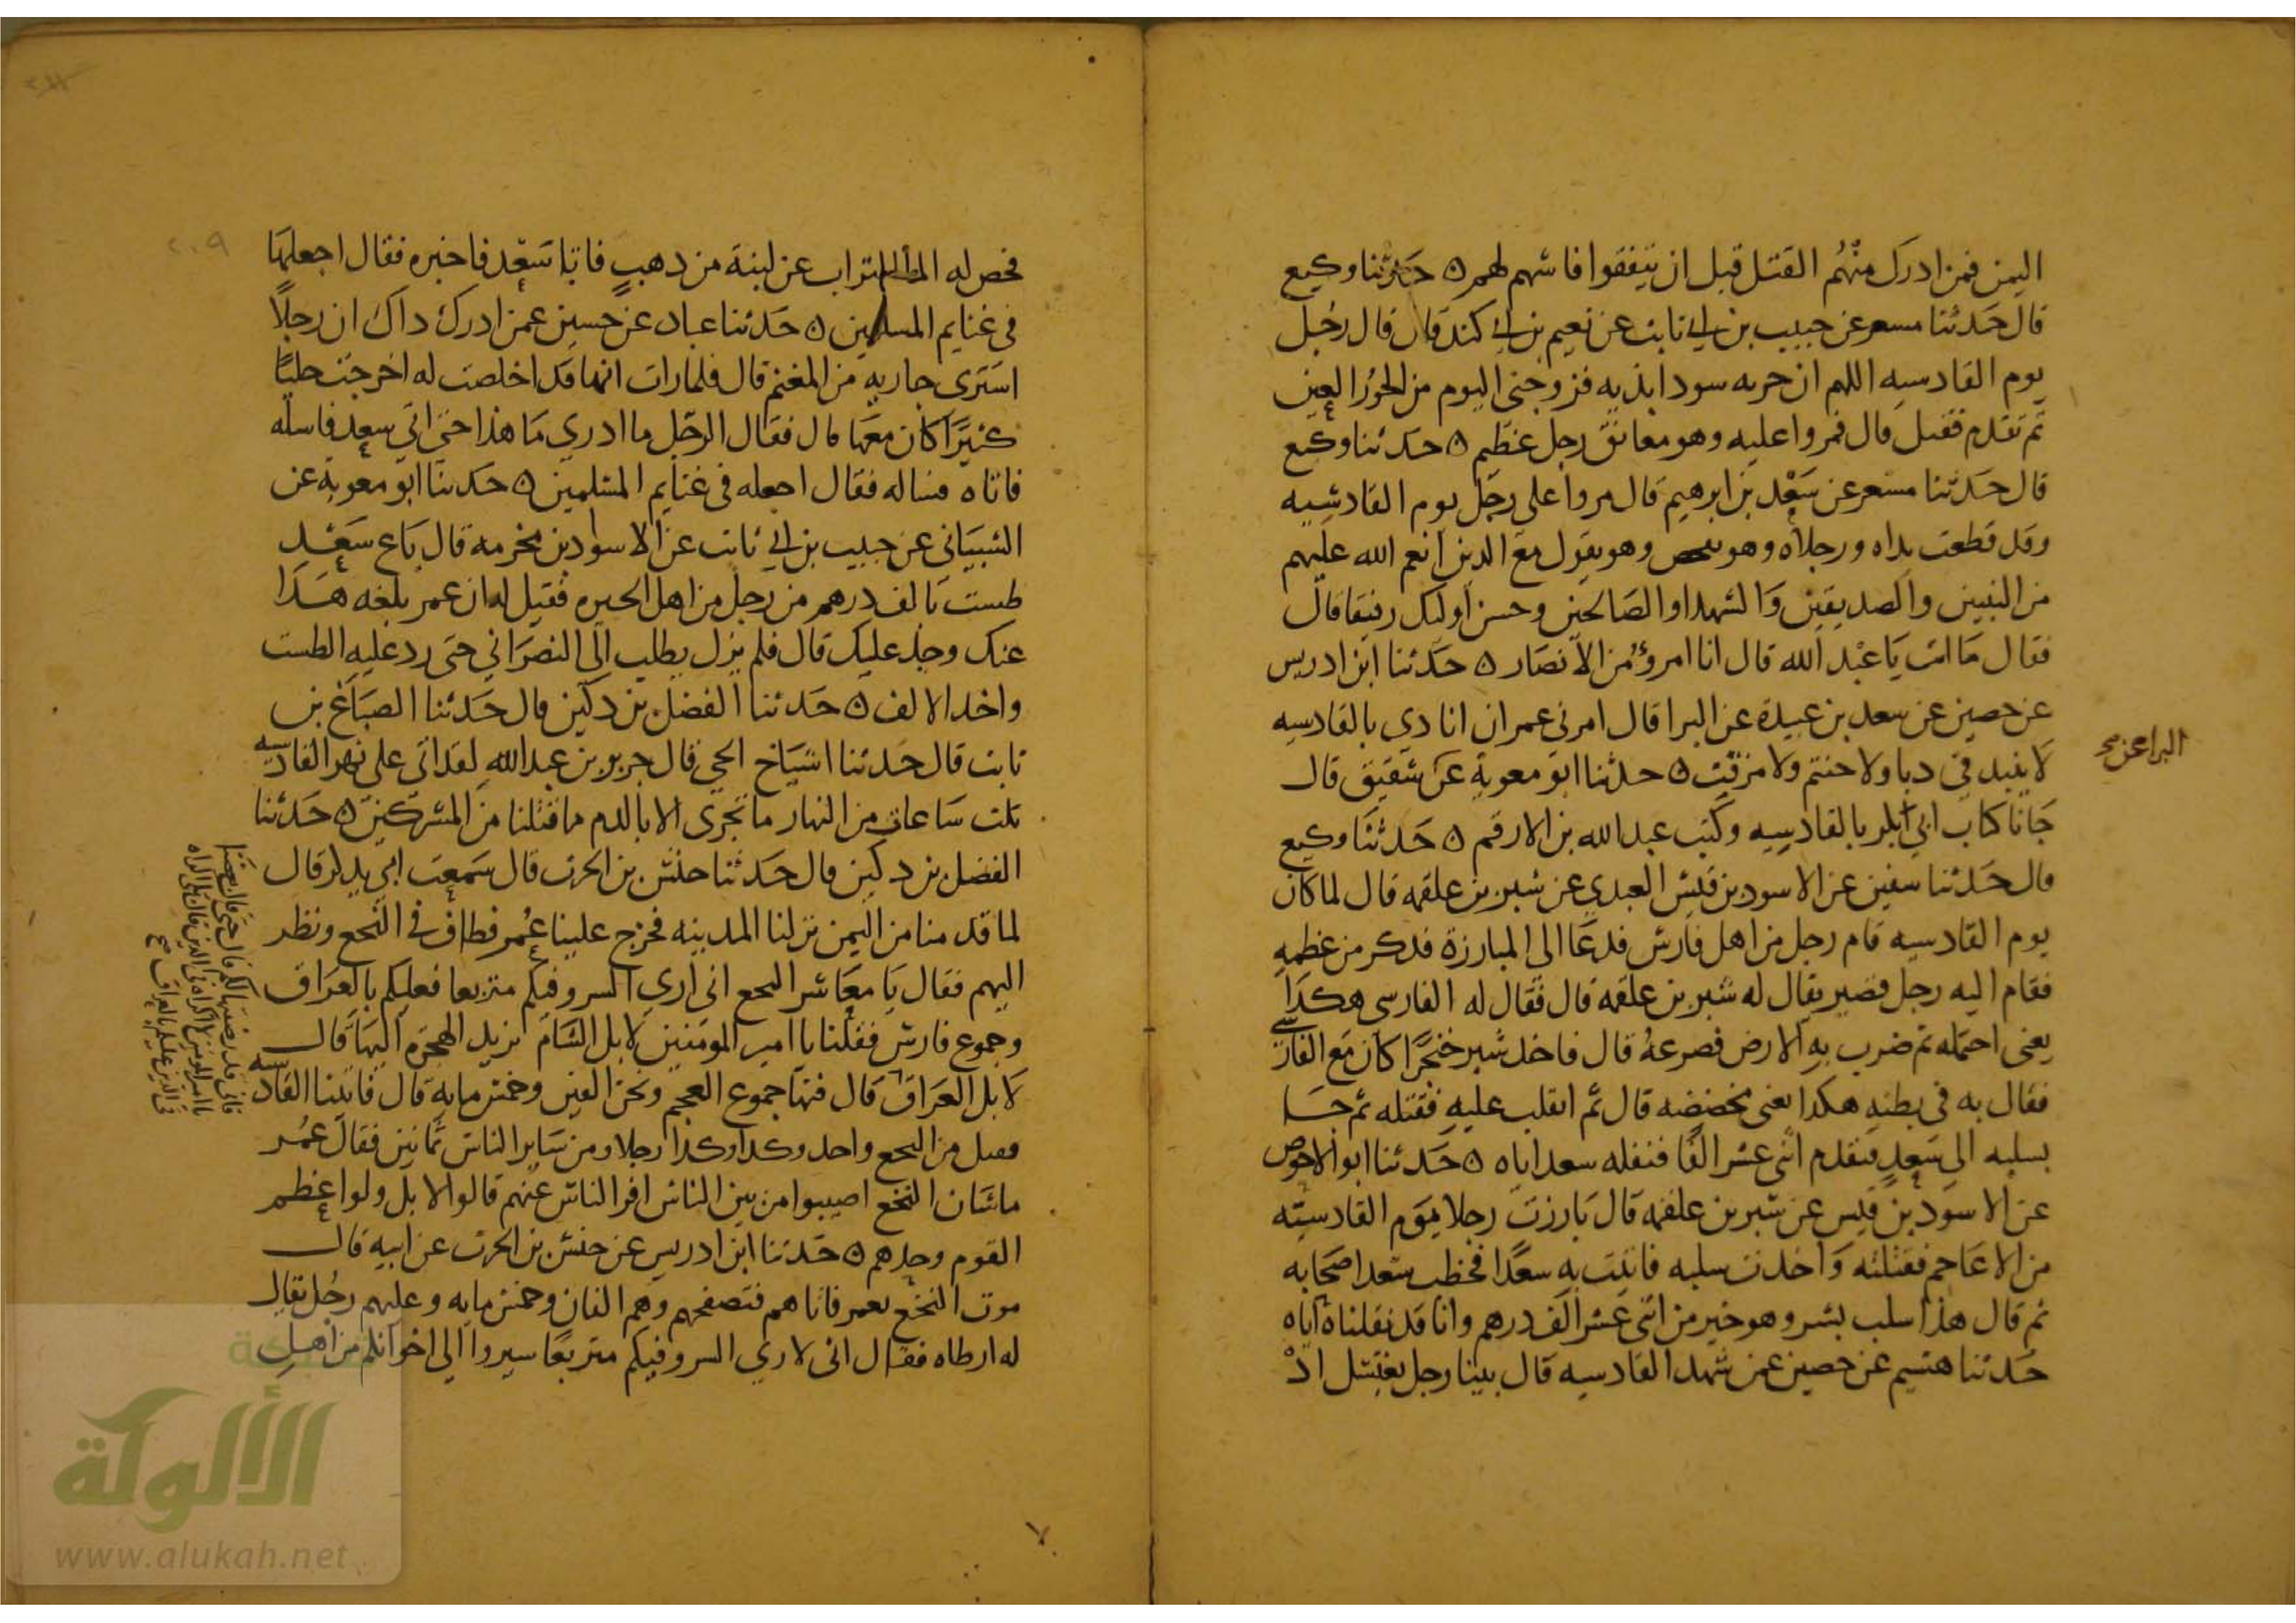 اليمن فمن ادرك منهم القتل قبل ان يتفقوا فاسهم لهم ه حدثنا وكيع
قال حدثنا مسعر عن حبيب بن ابي ثابت عن نعيم بن ابي هند قال قال رجل
يوم القادسيه اللهم ان حربه سودا بذيه فزوجني اليوم من الحور العين
ثم تقدم فقتل قال فمروا عليه وهو معانق رجل عظيم ه حدثنا وكيع
قال حدثنا مسعر عن سعد بن ابرهيم قال مروا على رجل يوم القادسيه
وقد قطعت يداه ورجلاه وهو يفحص وهو يقول مع الذين انعم الله عليهم
من النبيين والصديقين والشهدا والصالحين وحسن اوليك رفيقا قال
فقال ما انت يا عبد الله قال انا امرؤ من الانصار ه حدثنا ابن ادريس
عن حصين عن سعد بن عبيدة عن البرا قال امرني عمر ان انادي بالقادسيه
لا ينبذ في دبا ولا حنتم ولا مزفت ه حدثنا ابو معوية عن شقيق قال
جانا كتاب ابي بكر بالقادسيه وكتب عبد الله بن الارقم ه حدثنا وكيع
قال حدثنا سفين عن الاسود بن قيس العبدي عن شبر بن علقمه قال لما كان
يوم القادسيه قام رجل من اهل فارس فدعا الى المبارزة فذكر من عظمه
فقام اليه رجل قصير يقال له شبر بن علقمه قال فقال له الفارسي هكذا
يعني احتمله ثم ضرب به الارض فصرعه قال فاخذ شبر خنجرا كان مع الفارسي
فقال به في بطنه هكذا يعني فخضخضه قال ثم انقلب عليه فقتله ثم جا
بسلبه الى سعد فتقدم اثني عشر الفا فنفله سعد اياه ه حدثنا ابو الاحوص
عن الاسود بن قيس عن شبر بن علقمه قال بارزت رجلا يوم القادسيه
من الاعاجم فقتلته واخذت سلبه فاتيت به سعدا فخطب سعد اصحابه
ثم قال هذا سلب بشر وهو خير من اثني عشر الف درهم وانا قد نفلناه اياه
حدثنا هشيم عن حصين عمن شهد القادسيه قال بينا رجل يغتسل اذ
البرا عن صح
٢٠٩
فحص له التراب عن لبنة من ذهب فاتا سعد فاخبره فقال اجعلها
في غنايم المسلمين ه حدثنا عباد عن حصين عمن ادرك ذاك ان رجلا
اشترى جاريه من المغنم قال فلما رات انها قد اخلصت له اخرجت حليا
كثيرا كان معها قال فقال الرجل ما ادري ما هذا حتى اتي سعد فاسله
فاتاه فساله فقال اجعله في غنايم المسلمين ه حدثنا ابو معوية عن
الشيباني عن حبيب بن ابي ثابت عن الاسود بن مخرمه قال باع سعد
طست بالف درهم من رجل من اهل الحيره فقيل له ان عمر بلغه هذا
عنك وجد عليك قال فلم يزل يطلب الى النصراني حتى رد عليه الطست
واخذ الالف ه حدثنا الفضل بن دكين قال حدثنا الصباغ بن
ثابت قال حدثنا اشياخ الحي قال جرير بن عبد الله لقد اتي على نهر القادسيه
ثلت ساعات من النهار ما تجرى الا بالدم مما قتلنا من المشركين ه حدثنا
الفضل بن دكين قال حدثنا حنش بن الحرث قال سمعت ابي يذكر قال
لما قدمنا من اليمن نزلنا المدينه فخرج علينا عمر فطاف في النخع ونظر
اليهم فقال يا معاشر النخع اني اري السرو فيكم متربعا فعليكم بالعراق
وجموع فارس فقلنا يا امير المومنين لا بل الشام نريد الهجره اليها قال
لا بل العراق قال فيها جموع العجم ونحن الفين وخمس مايه قال فاتينا القادسيه
فقتل من النخع واحد وكذا وكذا رجلا ومن ساير الناس ثمانين فقال عمر
ما شان النخع اصيبوا من بين الناس افر الناس عنهم قالوا لا بل ولوا عظم
القوم وحدهم ه حدثنا ابن ادريس عن حنش بن الحرث عن ابيه قال
مرت النخع بعمر فاتاهم فتصفحهم وهم الفان وخمس مايه وعليهم رجل يقال
له ارطاه فقال اني لاري السرو فيكم متربعا سيروا الى اخوانكم من اهل
فاني قد رضيتها لكم قال حتى قال بعضنا
يا امير المومنين لا اكراه في الدين قال بلى لا اكراه
في الدين عليكم بالعراق صح
شبكة
الألوكة
www.alukah.net